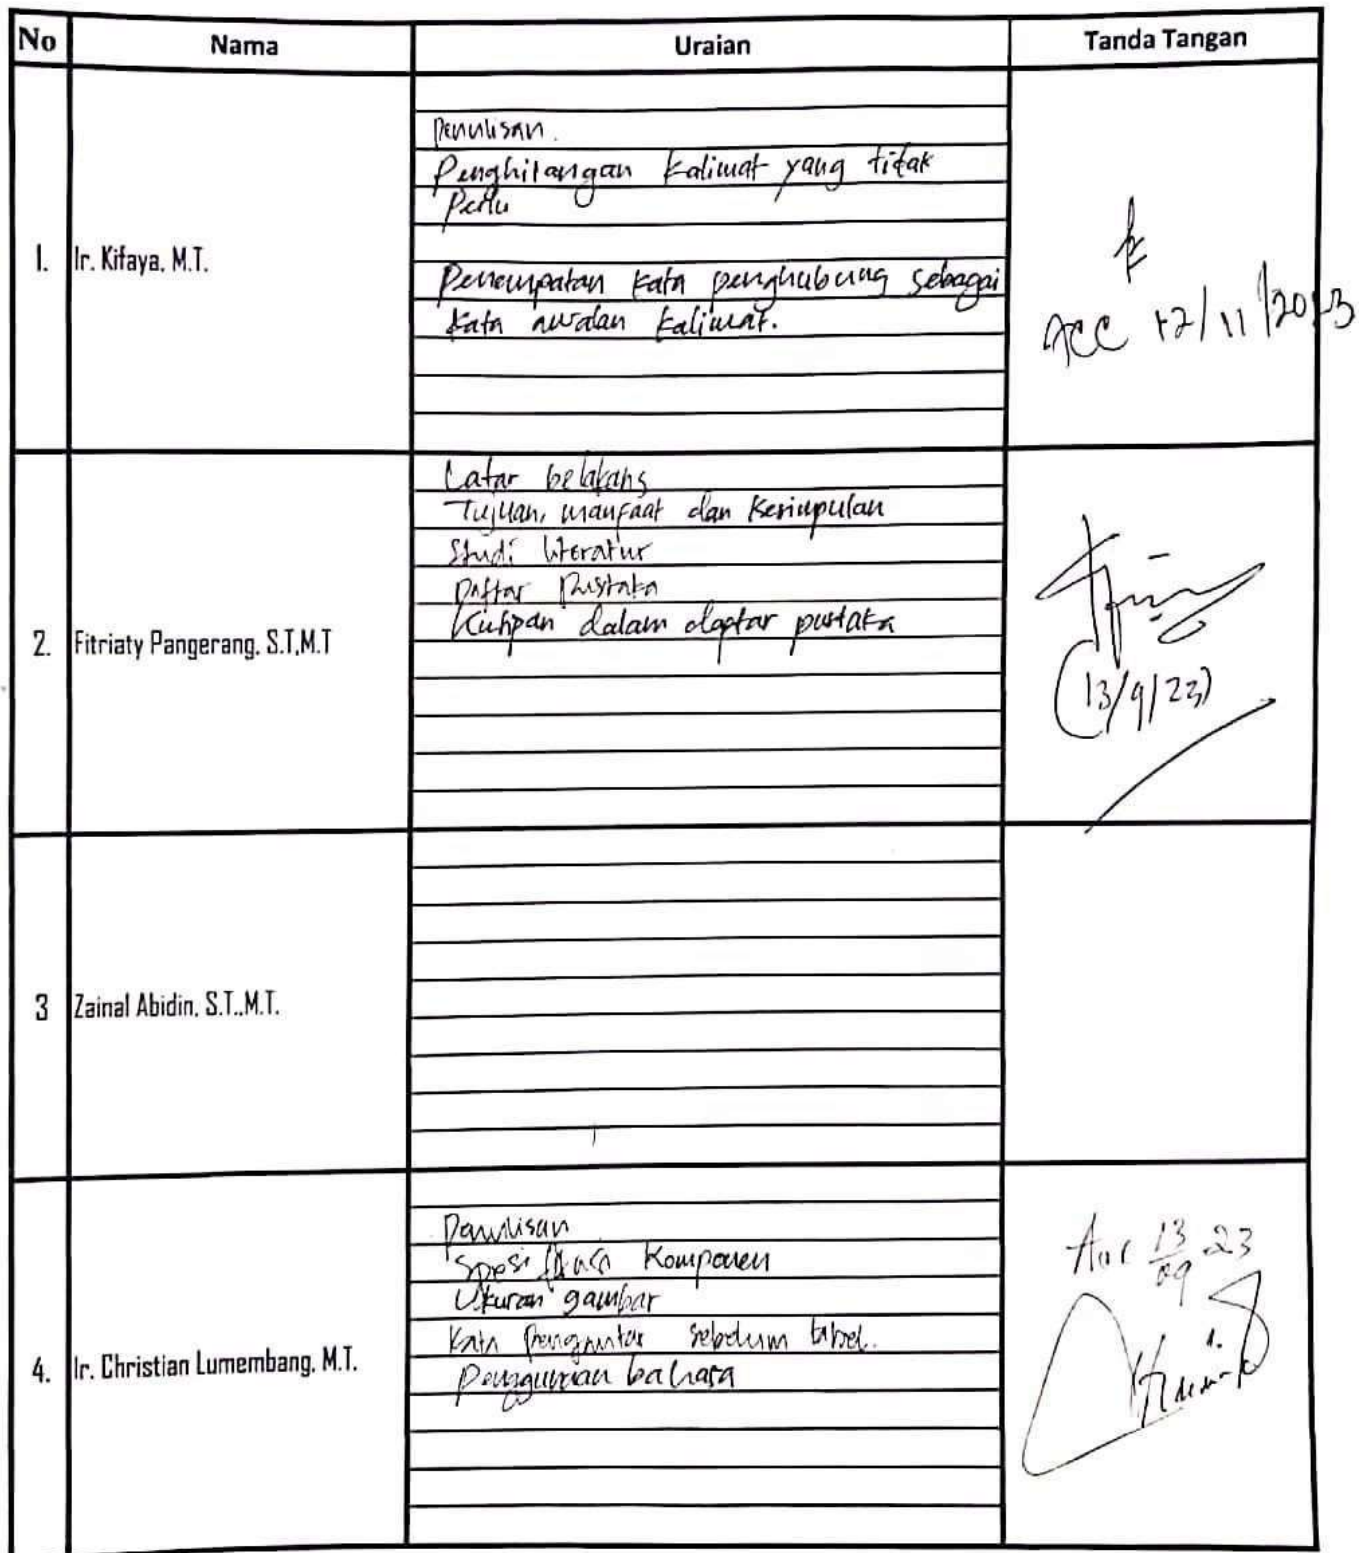 No Nama Uraian Tanda Tangan
1. Ir. Kifaya, M.T.
Penulisan.
Penghilangan kalimat yang tidak
Perlu
Penempatan kata penghubung sebagai
kata awalan kalimat.
ACC 12/11/2023
2. Fitriaty Pangerang, S.T,M.T
Latar belakang
Tujuan, manfaat dan kesimpulan
Studi literatur
Daftar Pustaka
Kutipan dalam daftar pustaka
(13/9/23)
3 Zainal Abidin, S.T.,M.T.
4. Ir. Christian Lumembang, M.T.
Penulisan
Spesifikasi Komponen
Ukuran gambar
Kata pengantar sebelum tabel.
Penggunaan bahasa
Acc 13/09 23